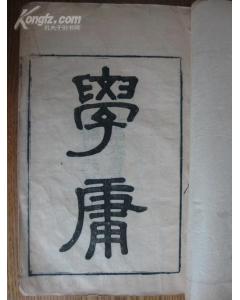 Kongfz.com
孔夫子旧书网
學
庸